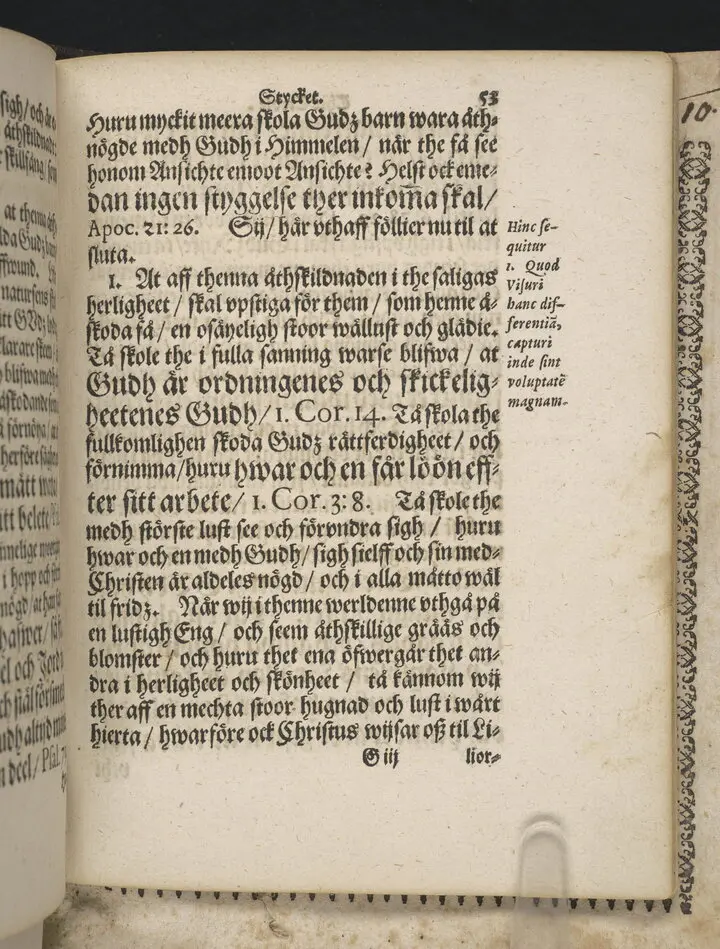 Stycket. 53
Huru myckit meera skola Gudz barn wara åth⸗
nögde medh Gudh i Himmelen / när the få see
honom Ansichte emoot Ansichte? Helst ock eme⸗
dan ingen styggelse ther inkom̃a skal /
Apoc. 21: 26. Sij / här vthaff föllier nu til at
sluta.
1. At aff thenna åthskildnaden i the saligas
herligheet / skal vpstiga för them / som henne å⸗
skoda få / en osäyeligh stoor wällust och glädie.
Tå skole the i fulla sanning warse blifwa / at
Gudh är ordningenes och skickelig⸗
heetenes Gudh / 1. Cor. 14. Tå skola the
fullkomlighen skoda Gudz rättferdigheet / och
förnimma / huru hwar och en får löön eff⸗
ter sitt arbete / 1. Cor. 3: 8. Tå skole the
medh störste lust see och förvndra sigh / huru
hwar och en medh Gudh / sigh sielff och sin med⸗
Christen är aldeles nögd / och i alla måtto wäl
til fridz. När wij i thenne werldenne vthgå på
en lustigh Eng / och seem åthskillige grääs och
blomster / och huru thet ena öfwergår thet an⸗
dra i herligheet och skönheet / tå kännom wij
ther aff en mechta stoor hugnad och lust i wårt
hierta / hwarföre ock Christus wijsar oß til Li⸗
G iij lior⸗
Hinc se-
quitur
1. Quod
Visuri
hanc dif-
ferentiã,
capturi
inde sint
voluptatẽ
magnam.
10.